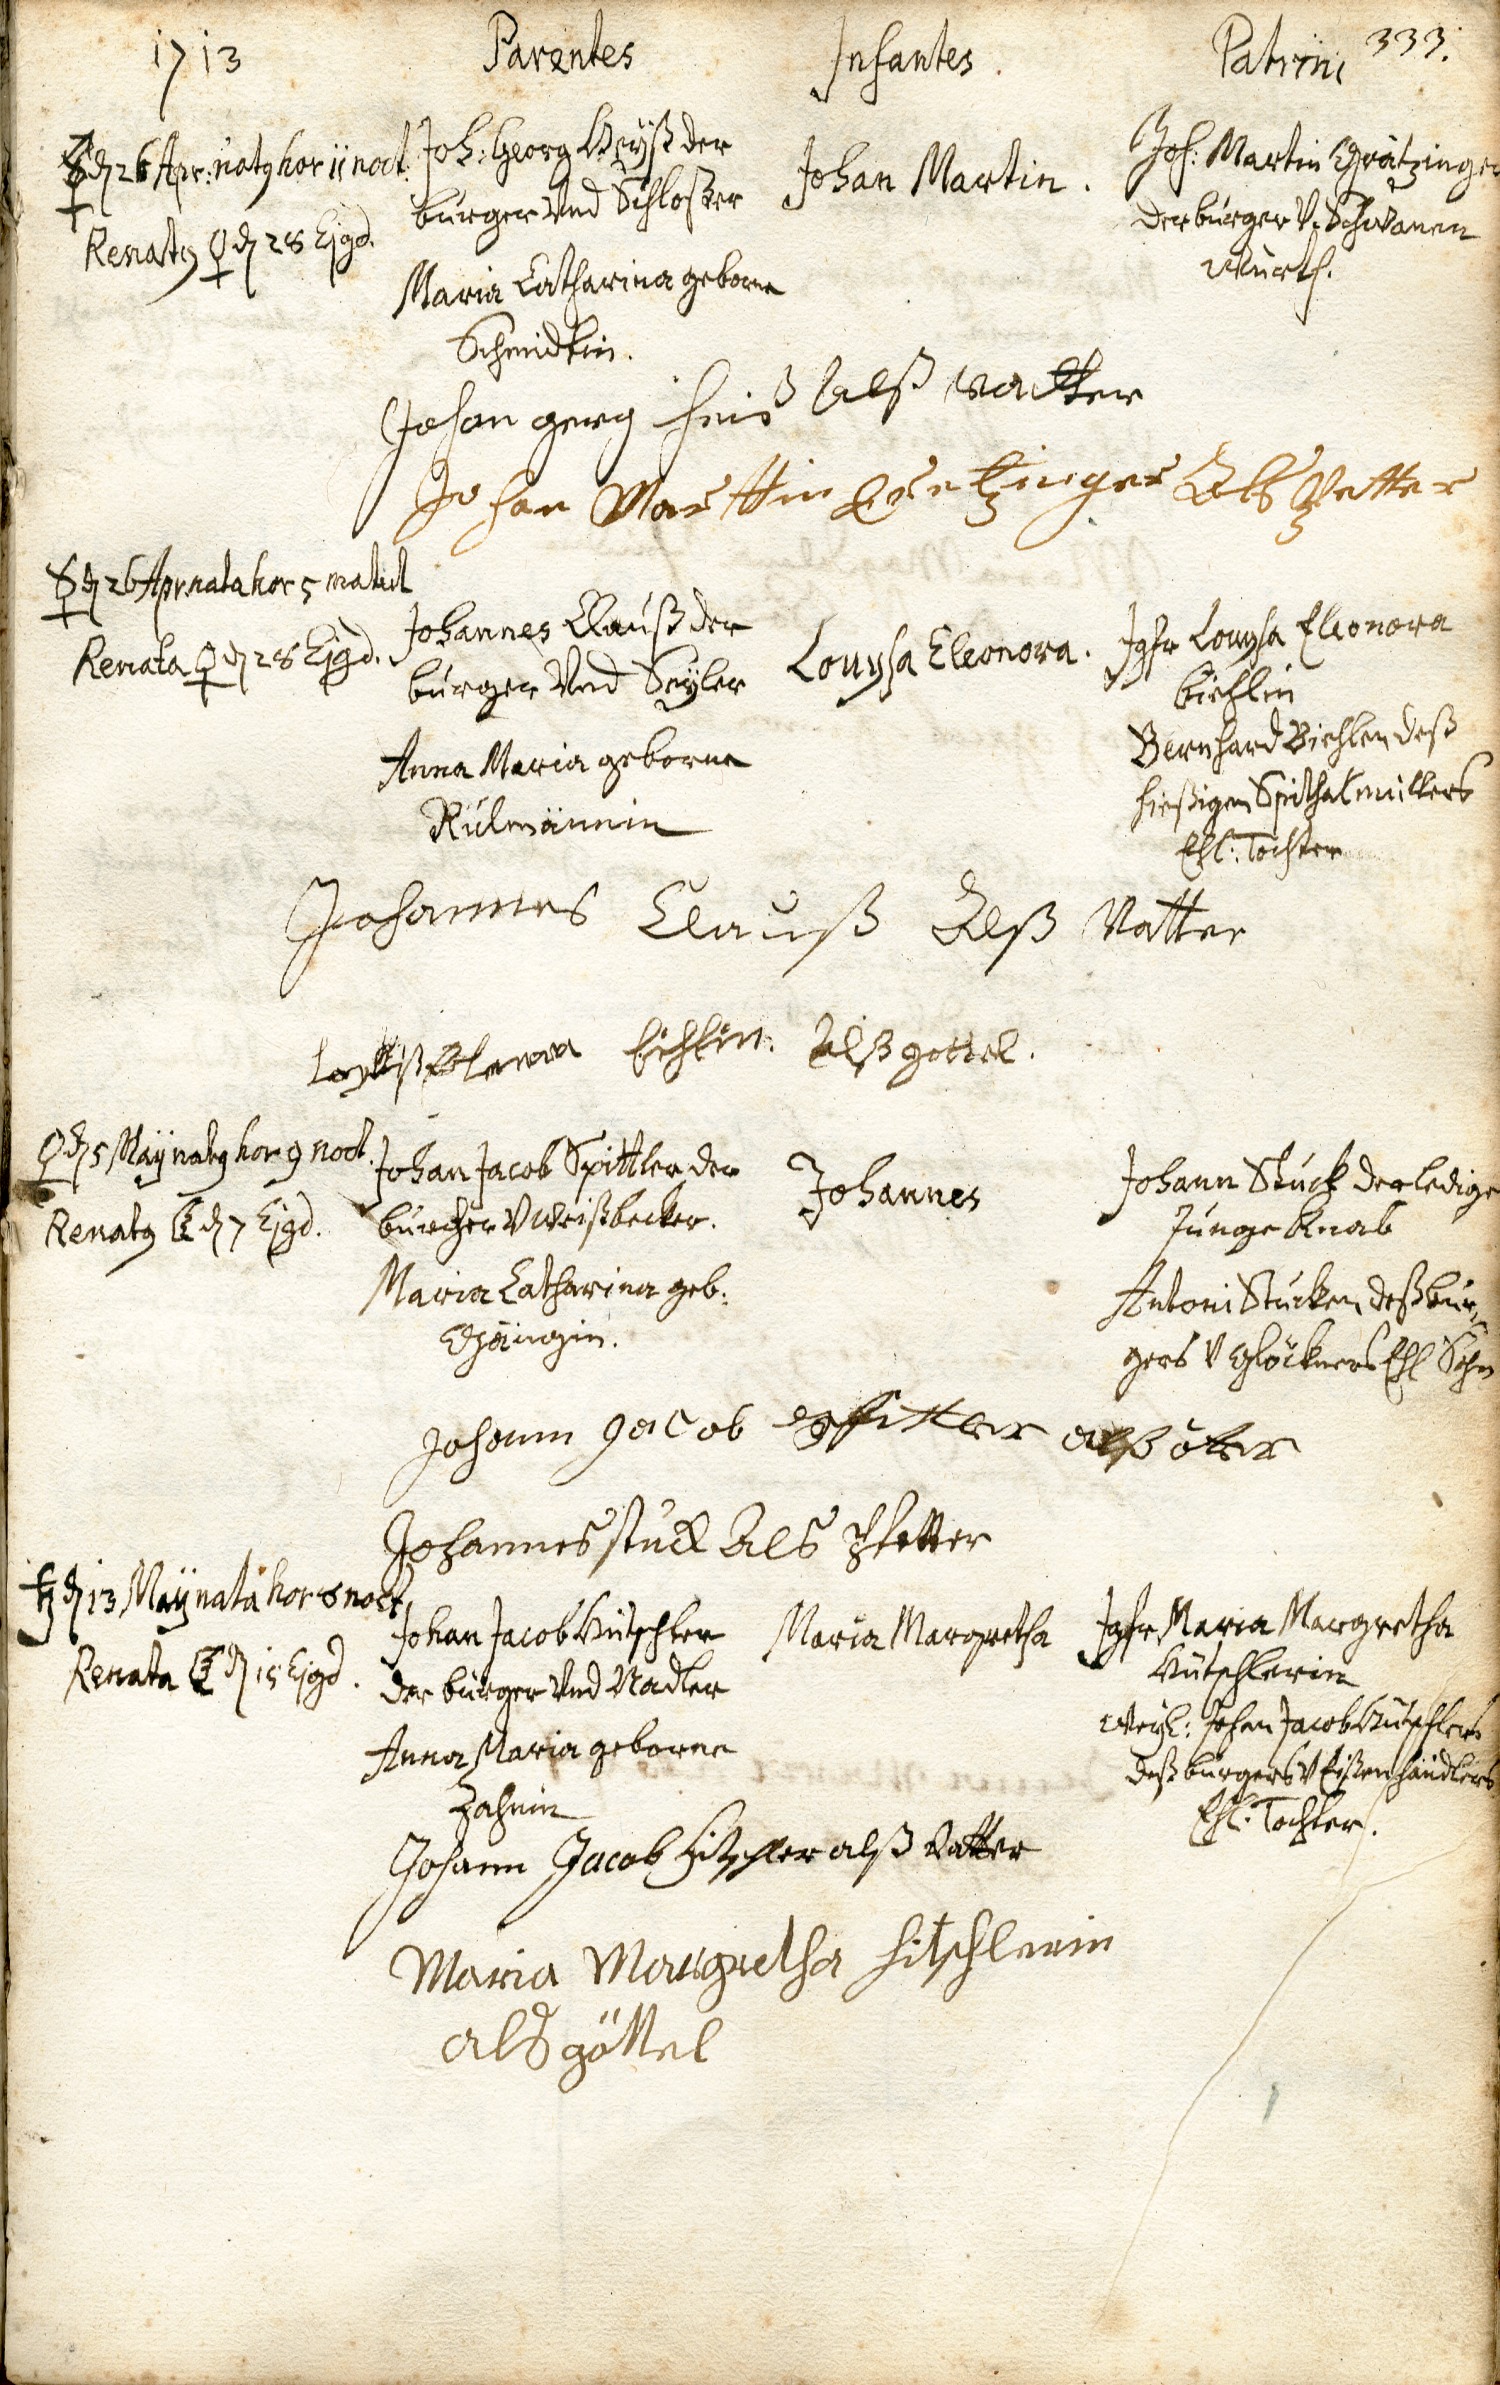 1713 Parentes Infantes. Patrini 333.
☿ d 26 Apr: natq hor 11 noct.
Renatq ♀ d 28 Ejgd.
Joh: Georg Heyß der
burger Und Schloßer
Maria Catharina geborne
Schmidtin.
Johan Martin.
Joh: Martin Grätzinger
der burger V. Schwanen
Würth.
Johan gerg heis alß vatter
Johan Marttin Gretzinger Alß Pfetter
☿ d 26 Apr nata hor 5 matut
Renata ♀ d 28 Ejgd.
Johannes Clauß der
burger Und Seyler
Anna Maria geborne
Rülmännin
Louysa Eleonora.
Jgfr Louysa Eleonora
Biehlin
Bernhard Biehlen deß
hießigen Spithalmüllers
Ehl: Tochter
Johannes Clauß Alß Vatter
Alß gottel.
♀ d 5 Maÿ natq hor 9 noct.
Renatq d 7 Ejgd.
Johan Jacob Spittler der
burcher V Weißbecker.
Maria Catharina geb:
Johannes
Johann Stuck der ledige
Junge Knab
Antoni Stucken deß bur,,
gers V Glöckners Ehl Sohn
Johann Jacob alß
Johannes stuck Als Pfetter
♄ d 13 Maÿ nata hor 8 noct.
Renata ☾ d 15 Ejgd.
Johan Jacob Hütschler
der burger Und Nadler
Anna Maria geborne
Zahnin
Maria Margretha
Jgfr Maria Margretha
Hütschlerin
Weyl: Johan Jacob Hütschlers
deß burgers V Eißenhändlers
Ehl: Tochter.
Johann Jacob Hitschler alß Vatter
Maria Margretha hitschlerin
als göttel